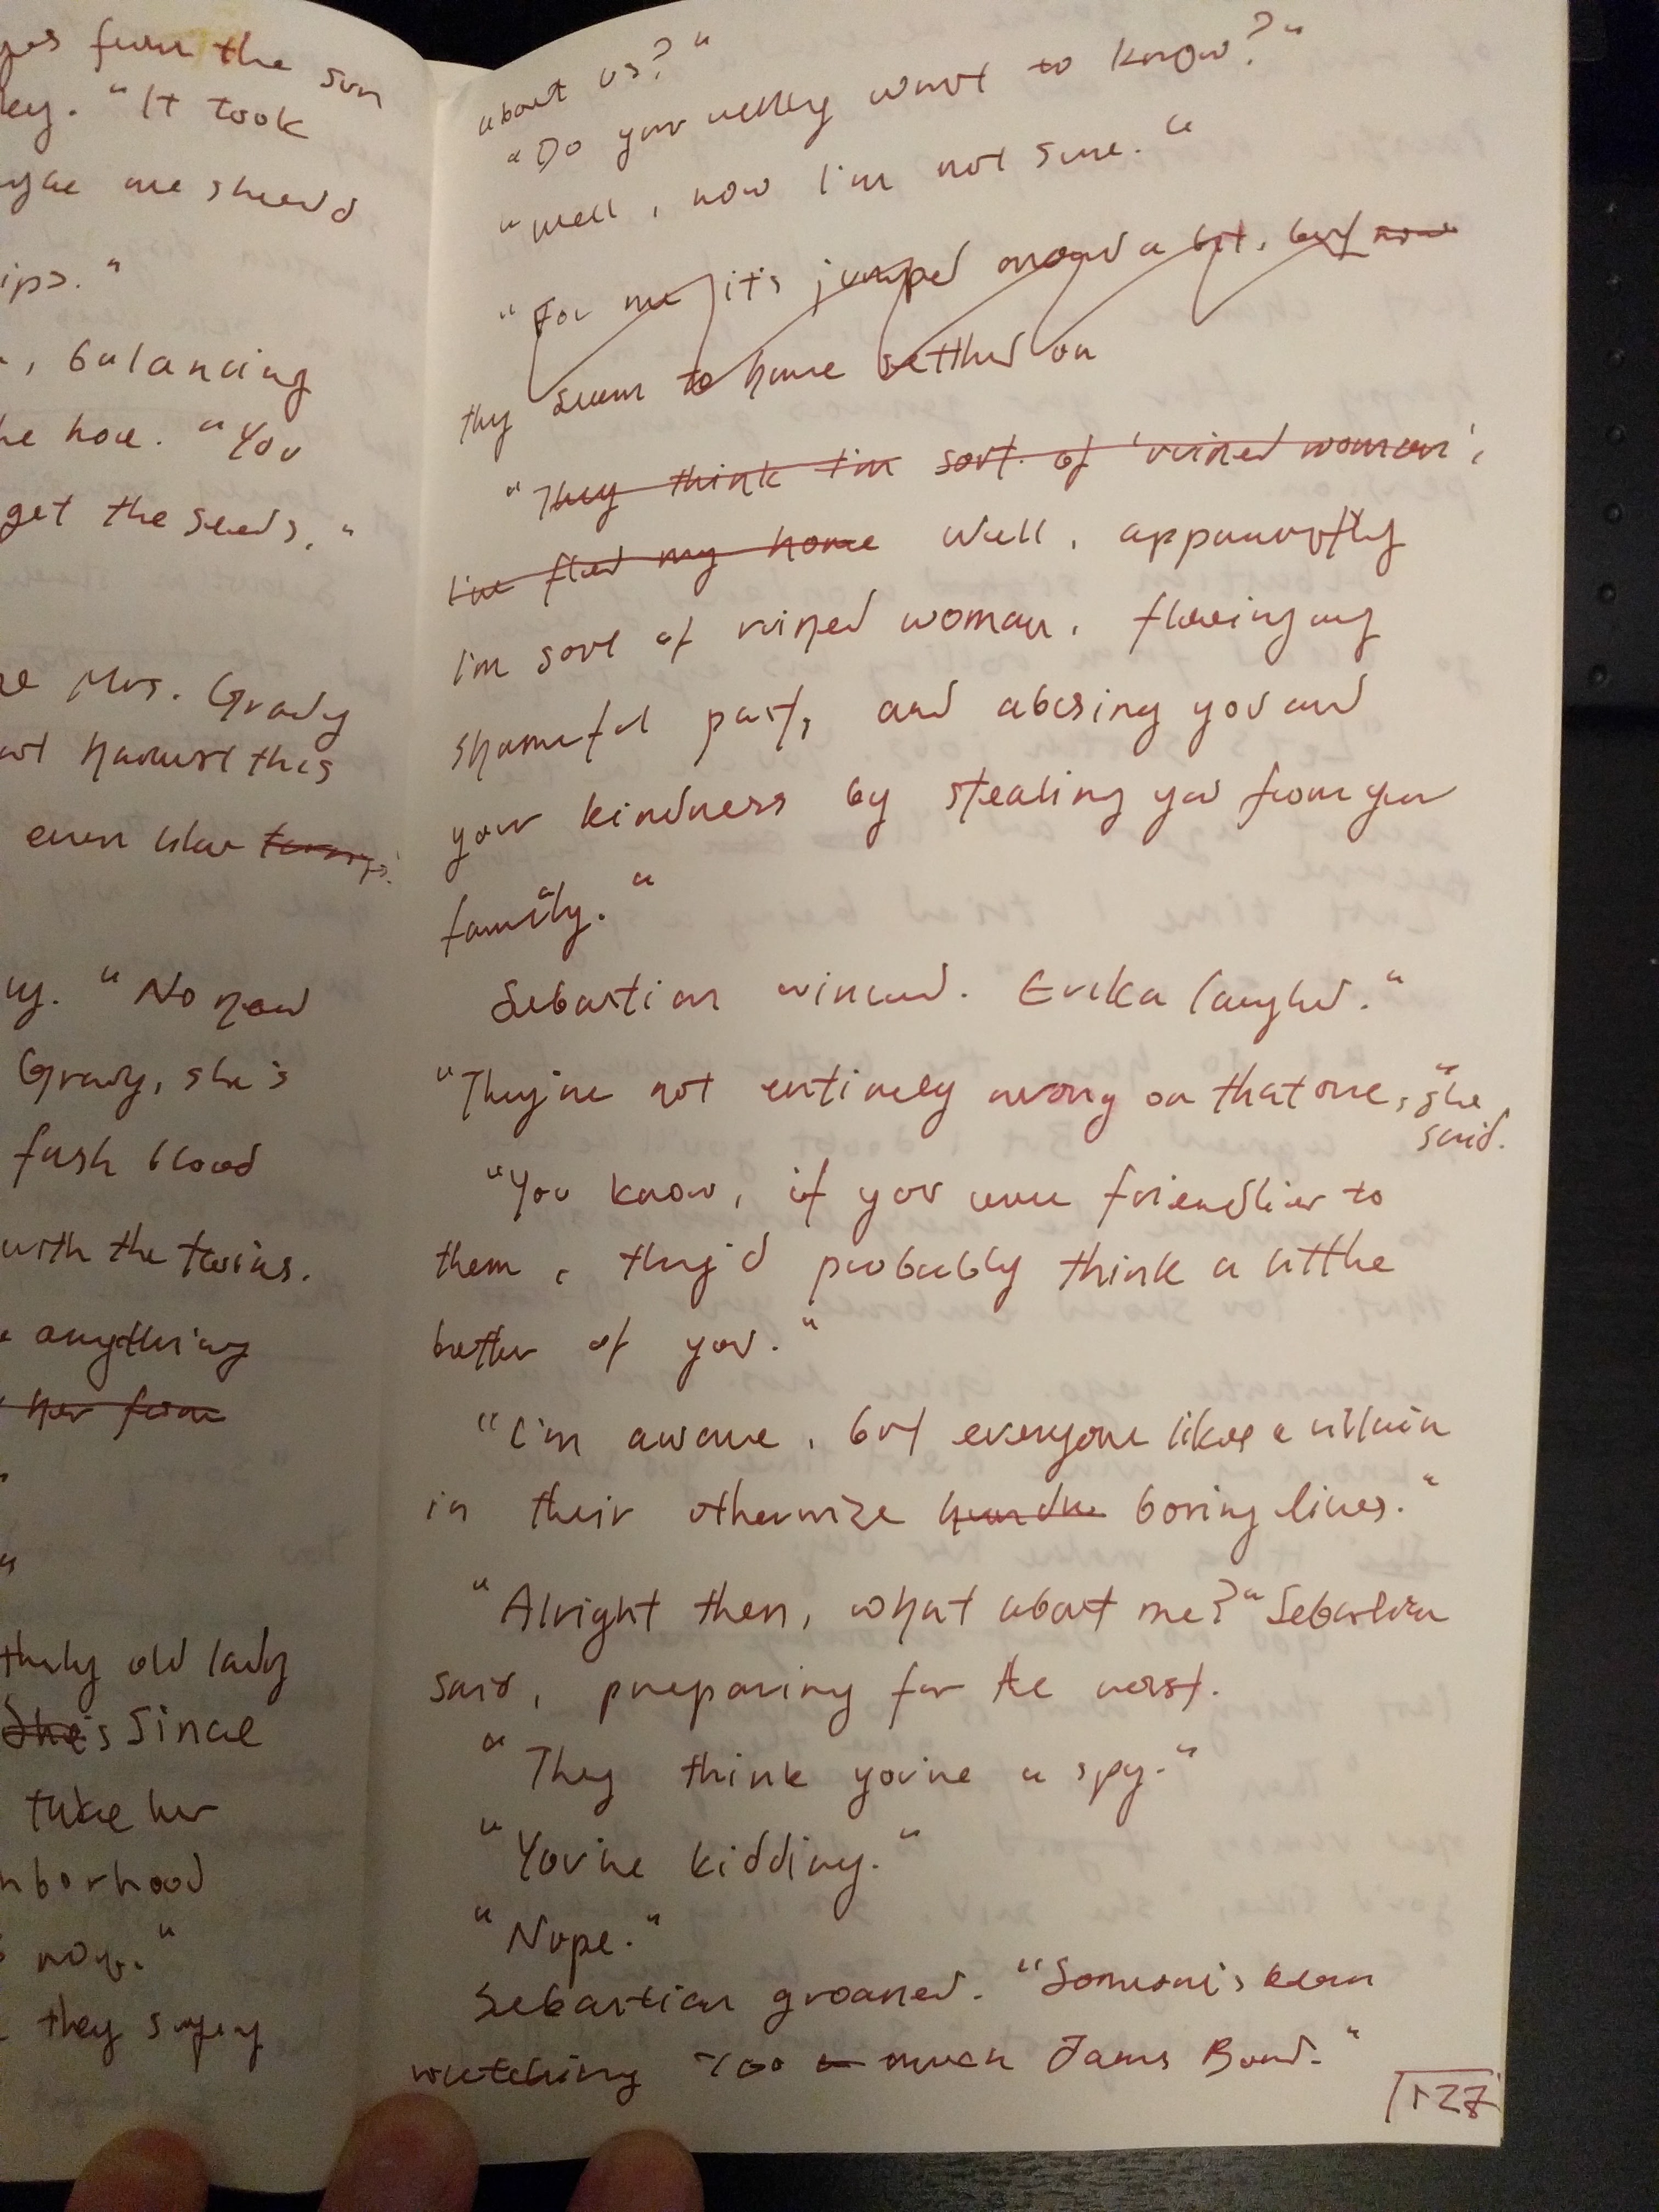 from the sun
"It took
we should
balancing
hoe. "You
get the seeds."
Mrs. Grady
harvest this
even like
"No new
Grady, she's
fresh blood
with the twins.
anything
her from
old lady
She's Since
take her
now."
they saying
about us?"
"Do you really want to know?"
"Well, now I'm not sure."
"For me it's jumped around a bit, but now
they seem to have settled on
"They think I'm sort of 'ruined woman',
I've fled my home Well, apparently
I'm sort of ruined woman, fleeing my
shameful past, and abusing you and
your kindness by stealing you from your
family."
Sebastian winced. Erika laughed."
"They're not entirely wrong on that one," she
said.
"You know, if you were friendlier to
them, they'd probably think a little
better of you."
"I'm aware, but everyone likes a villain
in their otherwise boring lives."
"Alright then, what about me?" Sebastian
said, preparing for the worst.
"They think you're a spy."
"You're kidding."
"Nope."
Sebastian groaned. "Someone's been
watching too much James Bond."
127